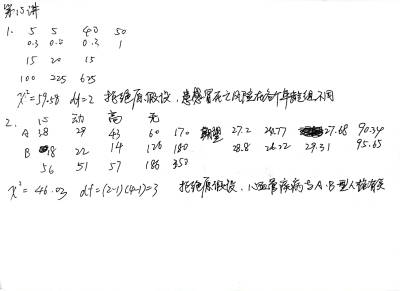 第15讲
1. 5 5 40 50
0.3 0.5 0.2 1
15 20 15
100 225 625
χ²=59.58 df=2 拒绝原假设，患感冒死亡风险在各个年龄组不同
2. 心 动 高 无
A 38 29 43 60 170 期望 27.2 24.77 27.68 90.34
B 18 22 14 126 180 28.8 26.22 29.31 95.65
56 51 57 186 350
χ²=46.03 df=(2-1)(4-1)=3 拒绝原假设，心血管疾病与A.B型人格有关